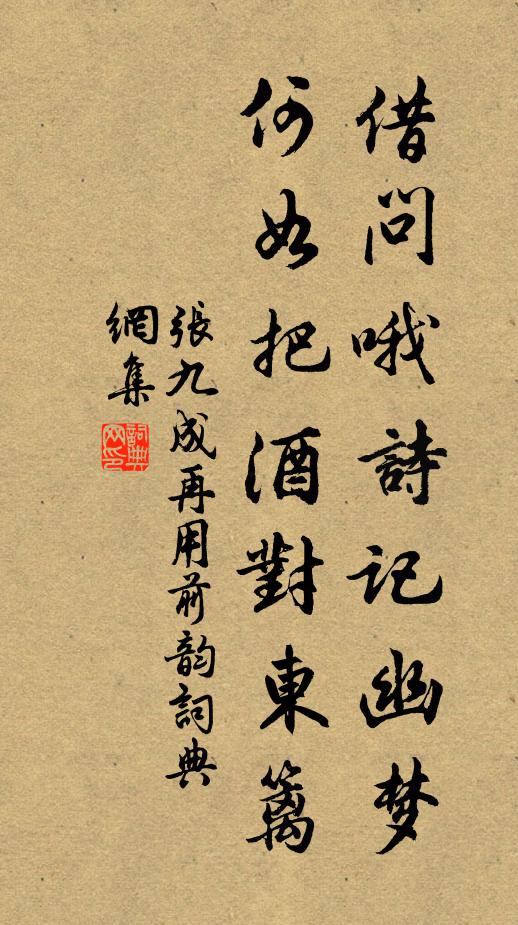 借问哦詩记幽梦
何如把酒對東篱
張九成再用前韵詞典
網集
詞典网印